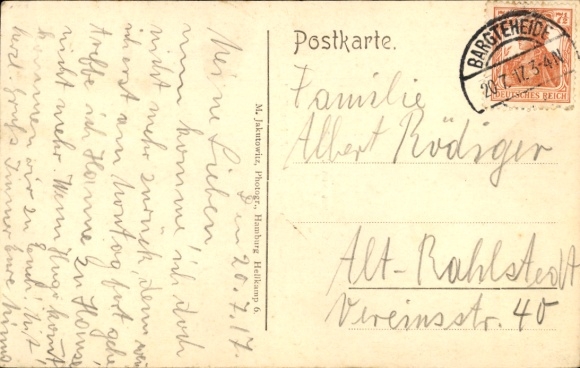 Postkarte.
BARGTEHEIDE
20.7.17. 3-4 N
7½ 7½
DEUTSCHES REICH
Familie
Albert Rödiger
Alt-Rahlstedt
Vereinsstr. 40
M. Jakutowitz, Photogr., Hamburg Hellkamp 6.
Den 20.7.17.
Meine Lieben!
nun komme ich doch
nicht mehr zurück, denn wenn
ich erst am Montag fort gehe
treffe ich Hanne zu Hause
nicht mehr. Wenn Hugo kommt
kommen wir zu Euch. Mit
herzl. Gruß Immer Eure